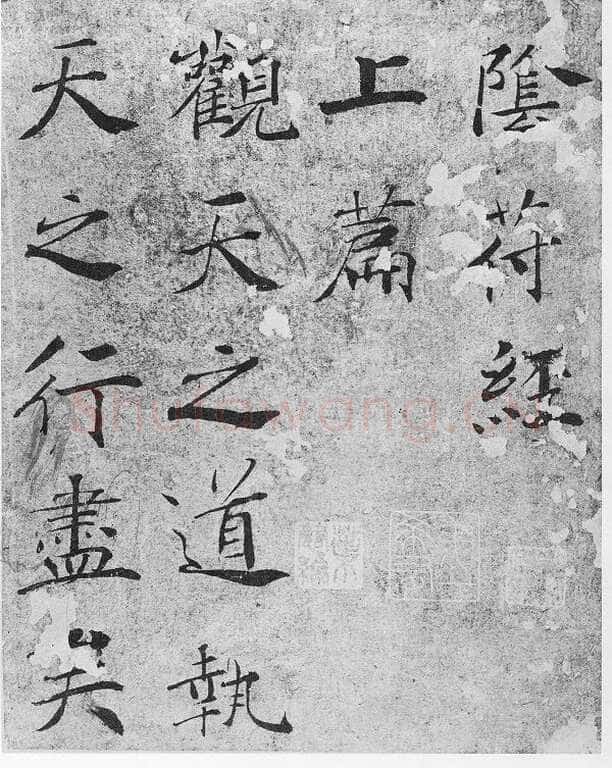 陰符經
上篇
觀天之道執
天之行盡矣
shufawang.cn